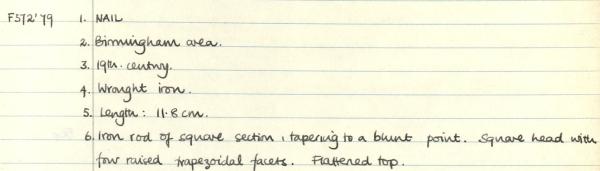 F572'79 1. NAIL
2. Birmingham area.
3. 19th. century.
4. Wrought iron.
5. Length: 11.8 cm.
6. Iron rod of square section, tapering to a blunt point. Square head with
four raised trapezoidal facets. Flattened top.